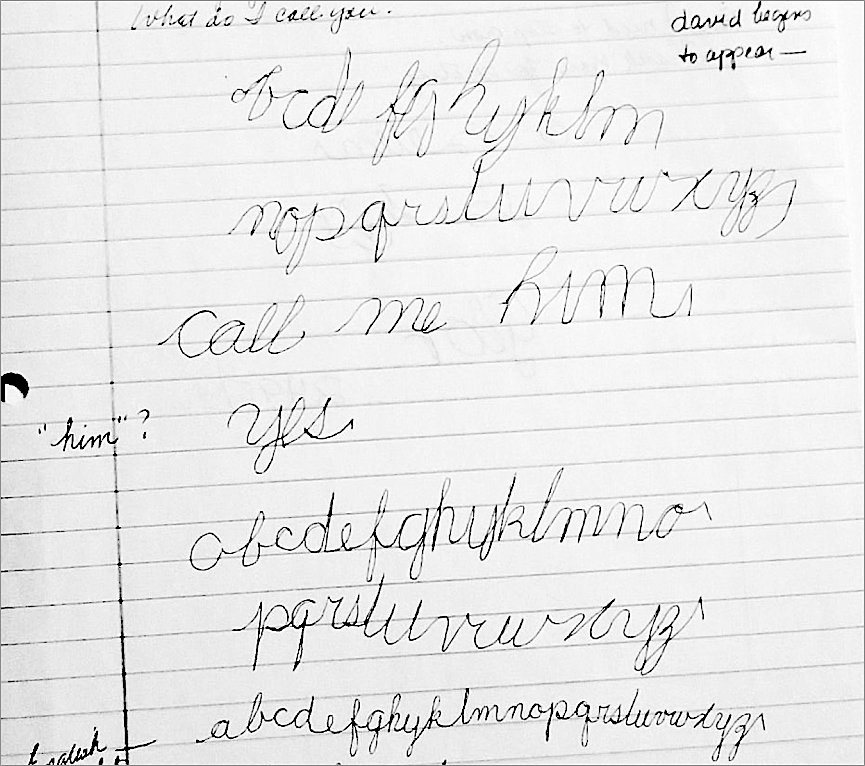 What do I call you?
david begins
to appear—
abcdefghyklm
nopqrstuvwxyz
call me him
"him"?
yes
abcdefghyklmno
pqrstuvwxyz
abcdefghyklmnopqrstuvwxyz
English —